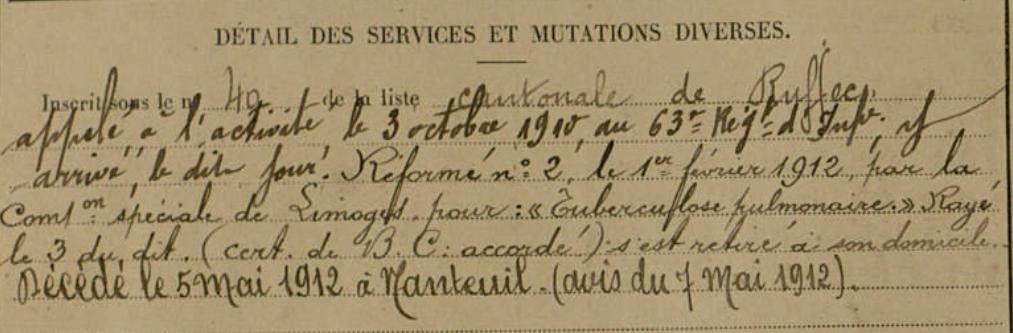 DÉTAIL DES SERVICES ET MUTATIONS DIVERSES.
Inscrit sous le n° 40 de la liste cantonale de Ruffec.
appelé à l'activité le 3 octobre 1910, au 63e Régt d'Infie, y
arrivé, le dit jour. Réformé n° 2, le 1er février 1912, par la
Comion spéciale de Limoges pour : « Tuberculose pulmonaire. » Rayé
le 3 du dit. (cert. de B. C. accordé) : s'est retiré à son domicile.
Décédé le 5 Mai 1912 à Nanteuil. (avis du 7 Mai 1912).